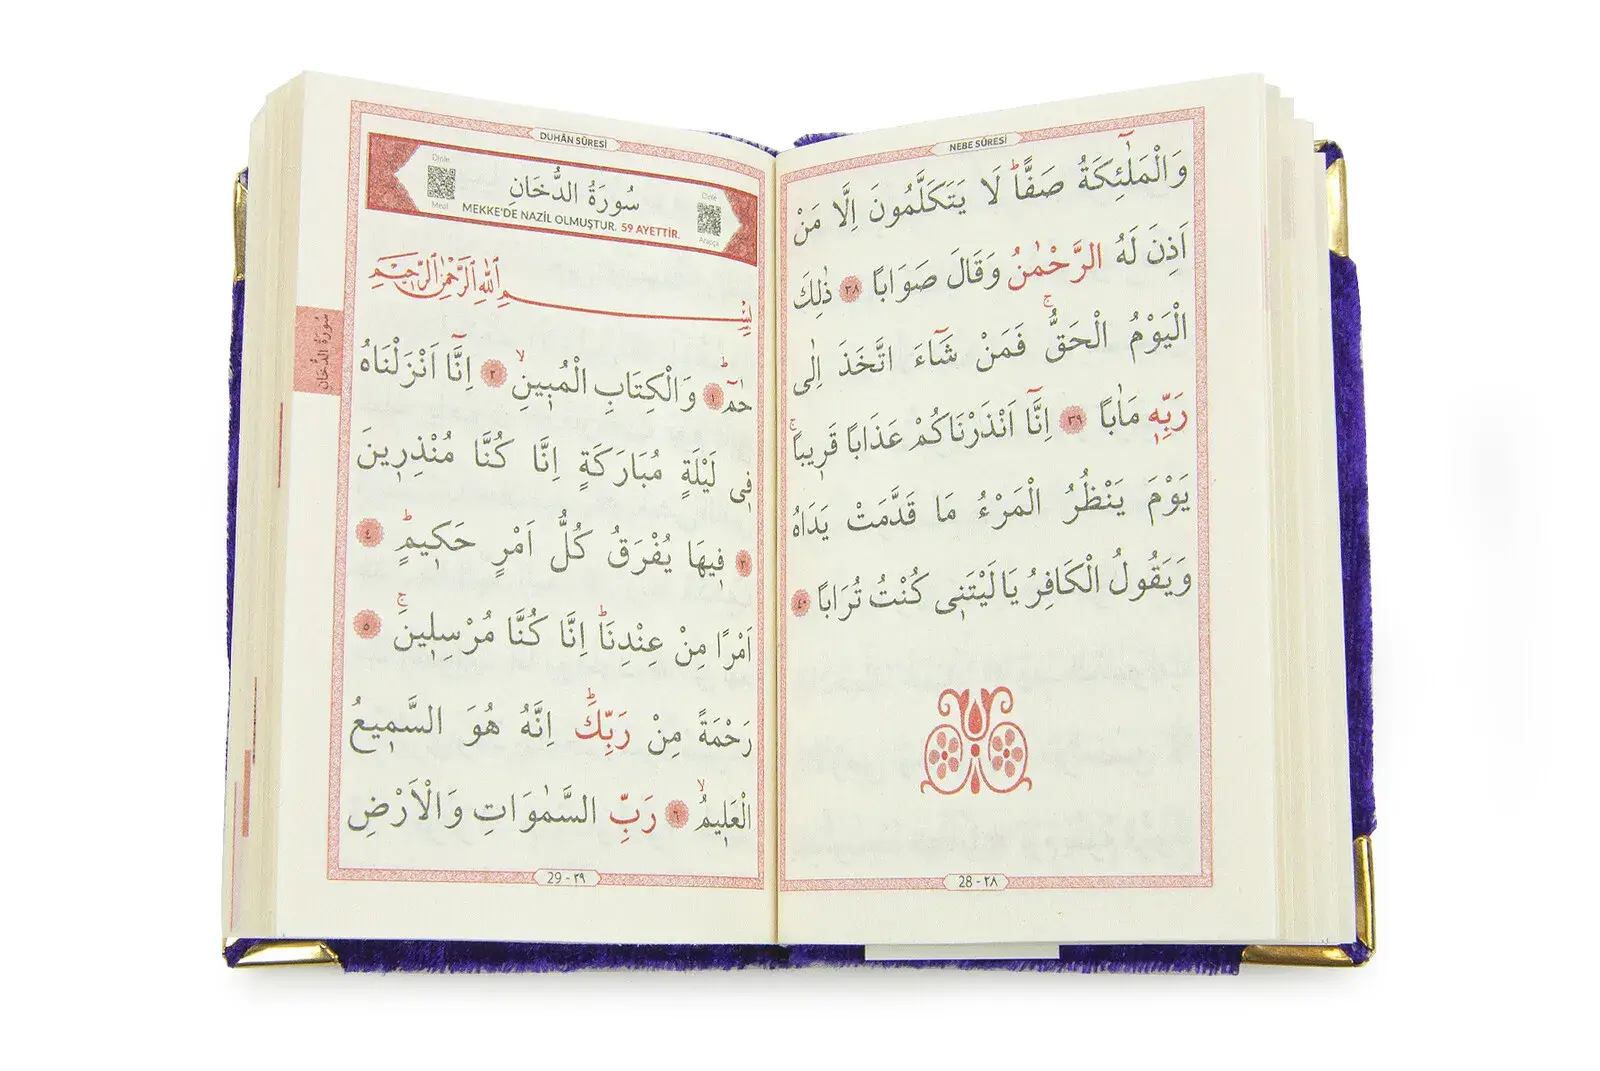 NEBE SÛRESİ
وَالْمَلٰٓئِكَةُ صَفًّاۜ لَا يَتَكَلَّمُونَ اِلَّا مَنْ
اَذِنَ لَهُ الرَّحْمٰنُ وَقَالَ صَوَابًا ٣٨ ذٰلِكَ
الْيَوْمُ الْحَقُّۚ فَمَنْ شَٓاءَ اتَّخَذَ اِلٰى
رَبِّه۪ مَاٰبًا ٣٩ اِنَّٓا اَنْذَرْنَاكُمْ عَذَابًا قَر۪يبًاۚ
يَوْمَ يَنْظُرُ الْمَرْءُ مَا قَدَّمَتْ يَدَاهُ
وَيَقُولُ الْكَافِرُ يَا لَيْتَن۪ى كُنْتُ تُرَابًا ٤٠
28 - ٢٨
DUHÂN SÛRESİ
Dinle
Meal
سُورَةُ الدُّخَانِ
Dinle
Arapça
MEKKE'DE NAZİL OLMUŞTUR. 59 AYETTİR.
بِسْمِ اللّٰهِ الرَّحْمٰنِ الرَّحِيمِ
سُورَةُ الدُّخَان
حٰمٓۜ ١ وَالْكِتَابِ الْمُب۪ينِۙ ٢ اِنَّٓا اَنْزَلْنَاهُ
ف۪ى لَيْلَةٍ مُبَارَكَةٍ اِنَّا كُنَّا مُنْذِر۪ينَ
٣ ف۪يهَا يُفْرَقُ كُلُّ اَمْرٍ حَك۪يمٍۜ ٤
اَمْرًا مِنْ عِنْدِنَاۜ اِنَّا كُنَّا مُرْسِل۪ينَۚ ٥
رَحْمَةً مِنْ رَبِّكَۜ اِنَّهُ هُوَ السَّم۪يعُ
الْعَل۪يمُۙ ٦ رَبِّ السَّمٰوَاتِ وَالْاَرْضِ
29 - ٢٩